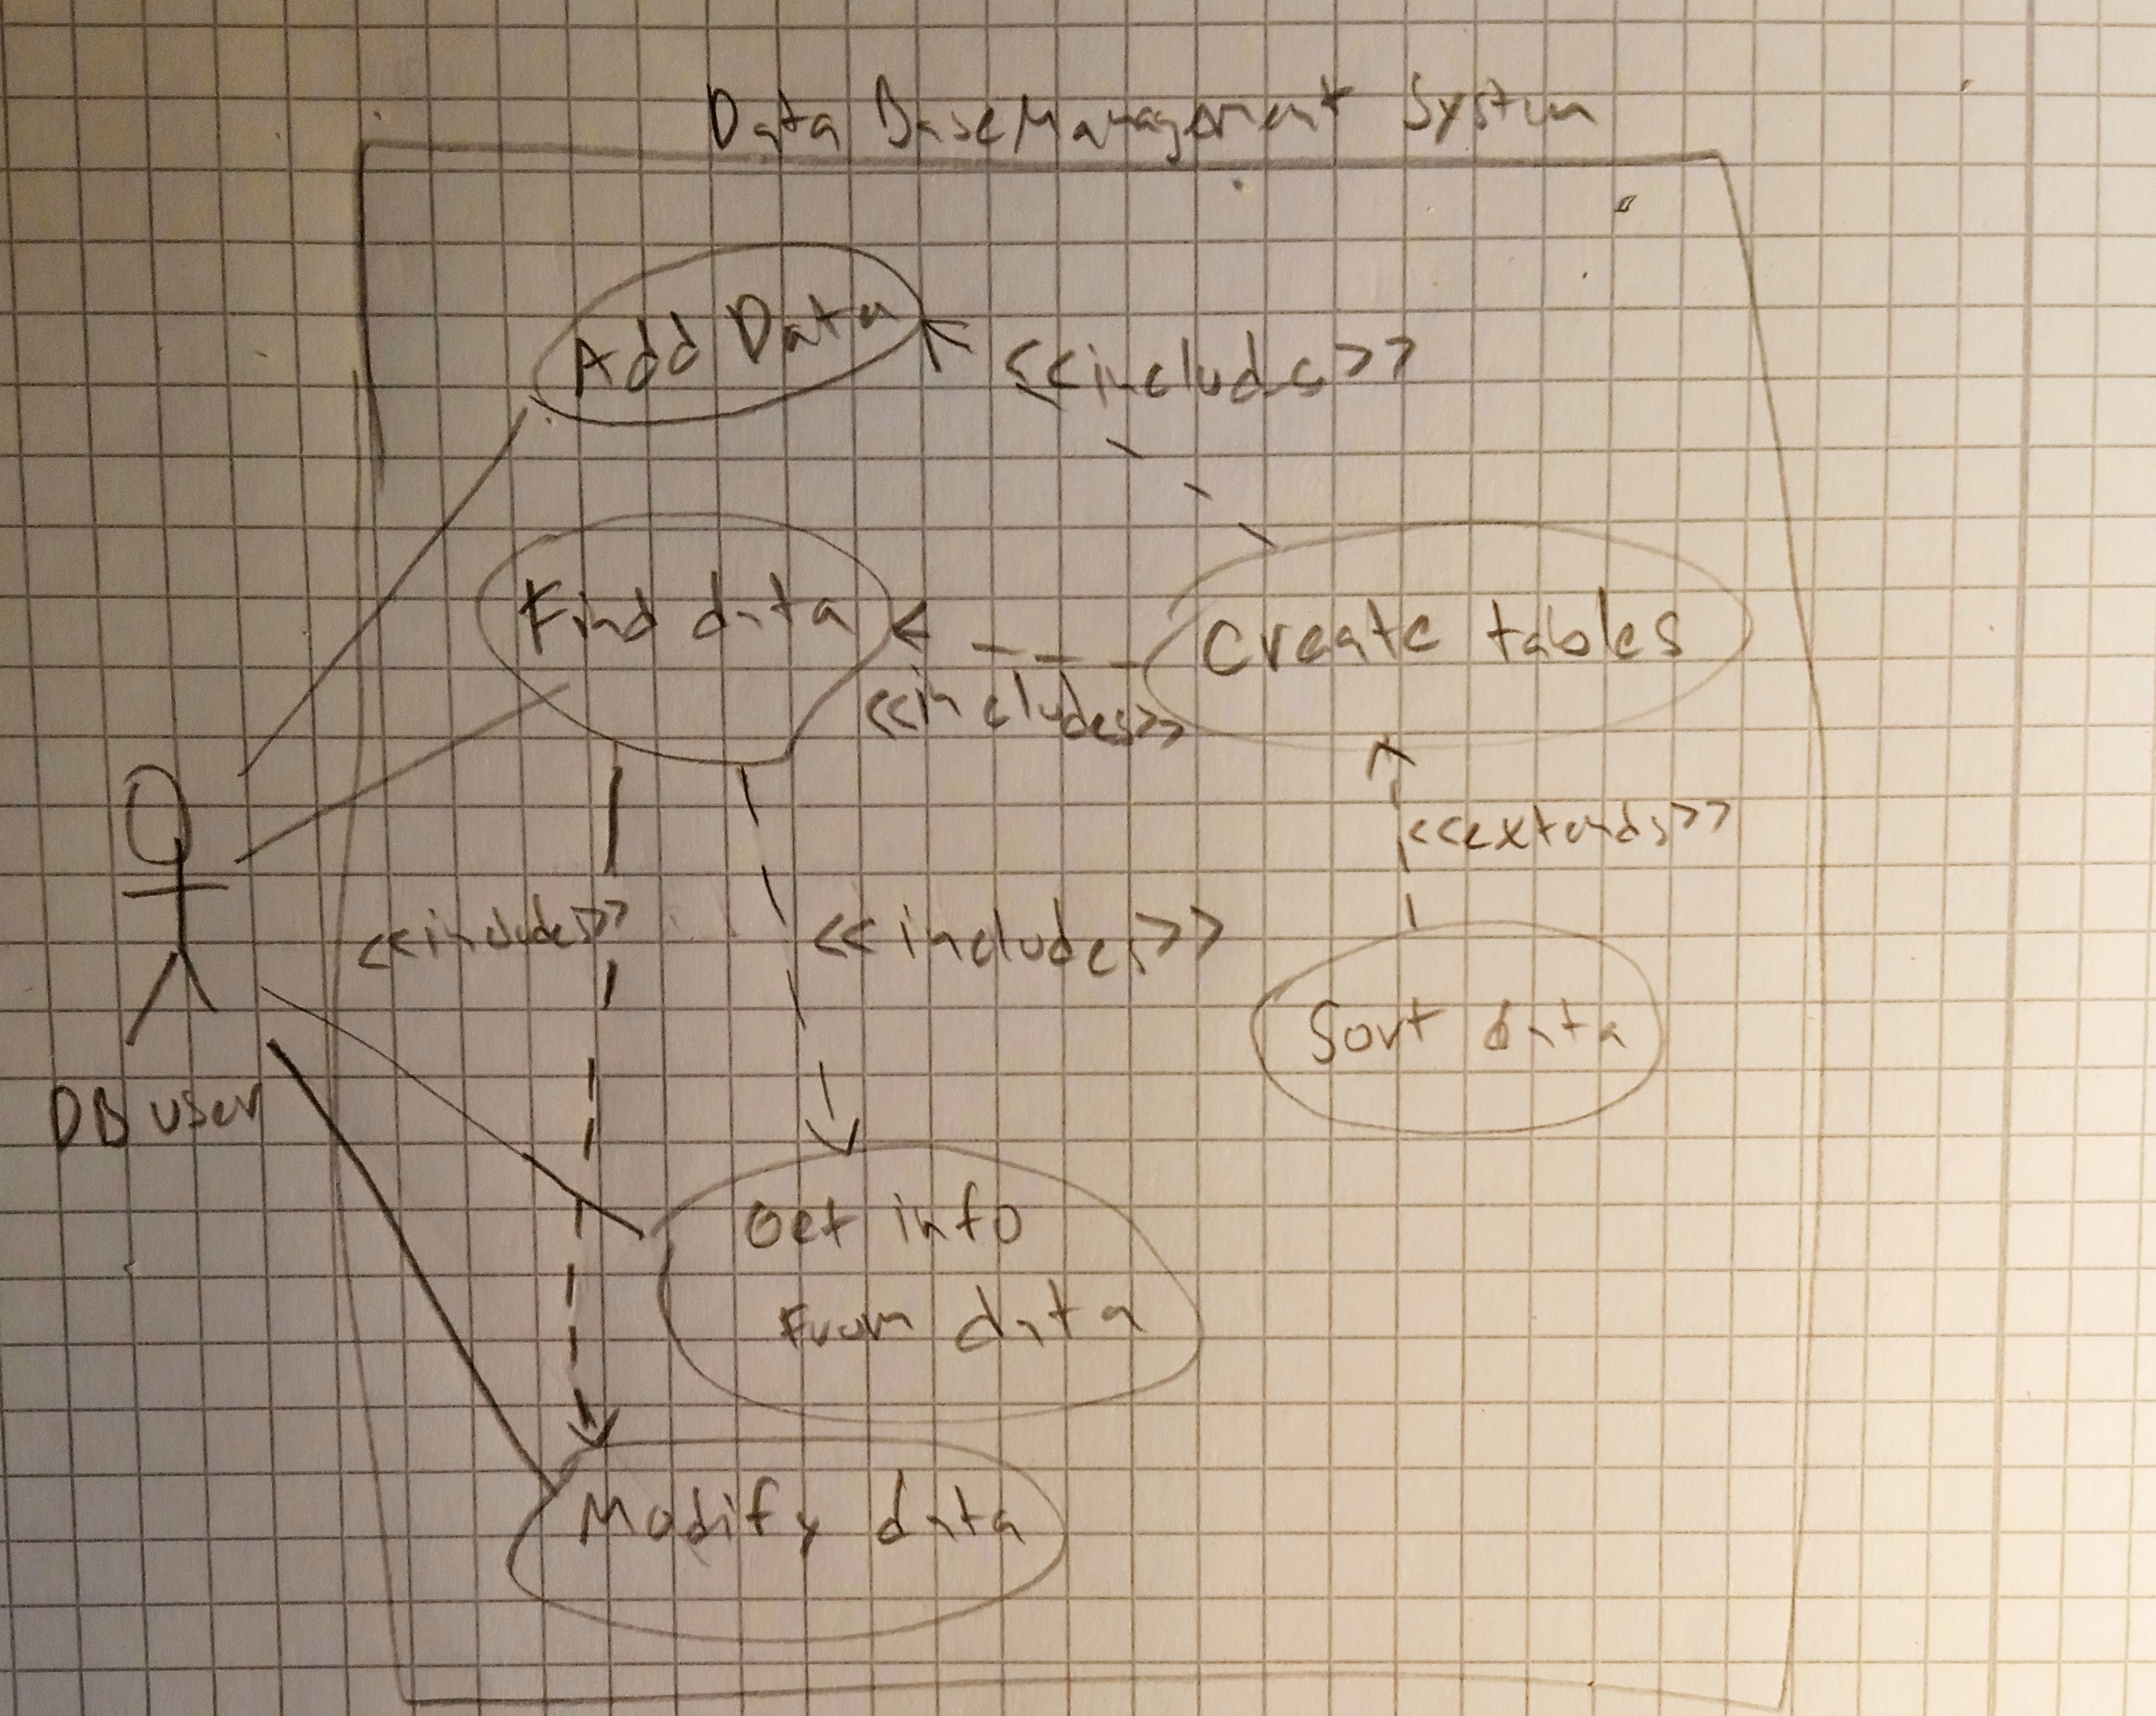 Data Base Management System
Add Data
<<includes>>
Find data
Create tables
<<includes>>
<<extends>>
<<includes>>
<<includes>>
Sort data
DB user
Get info
From data
Modify data